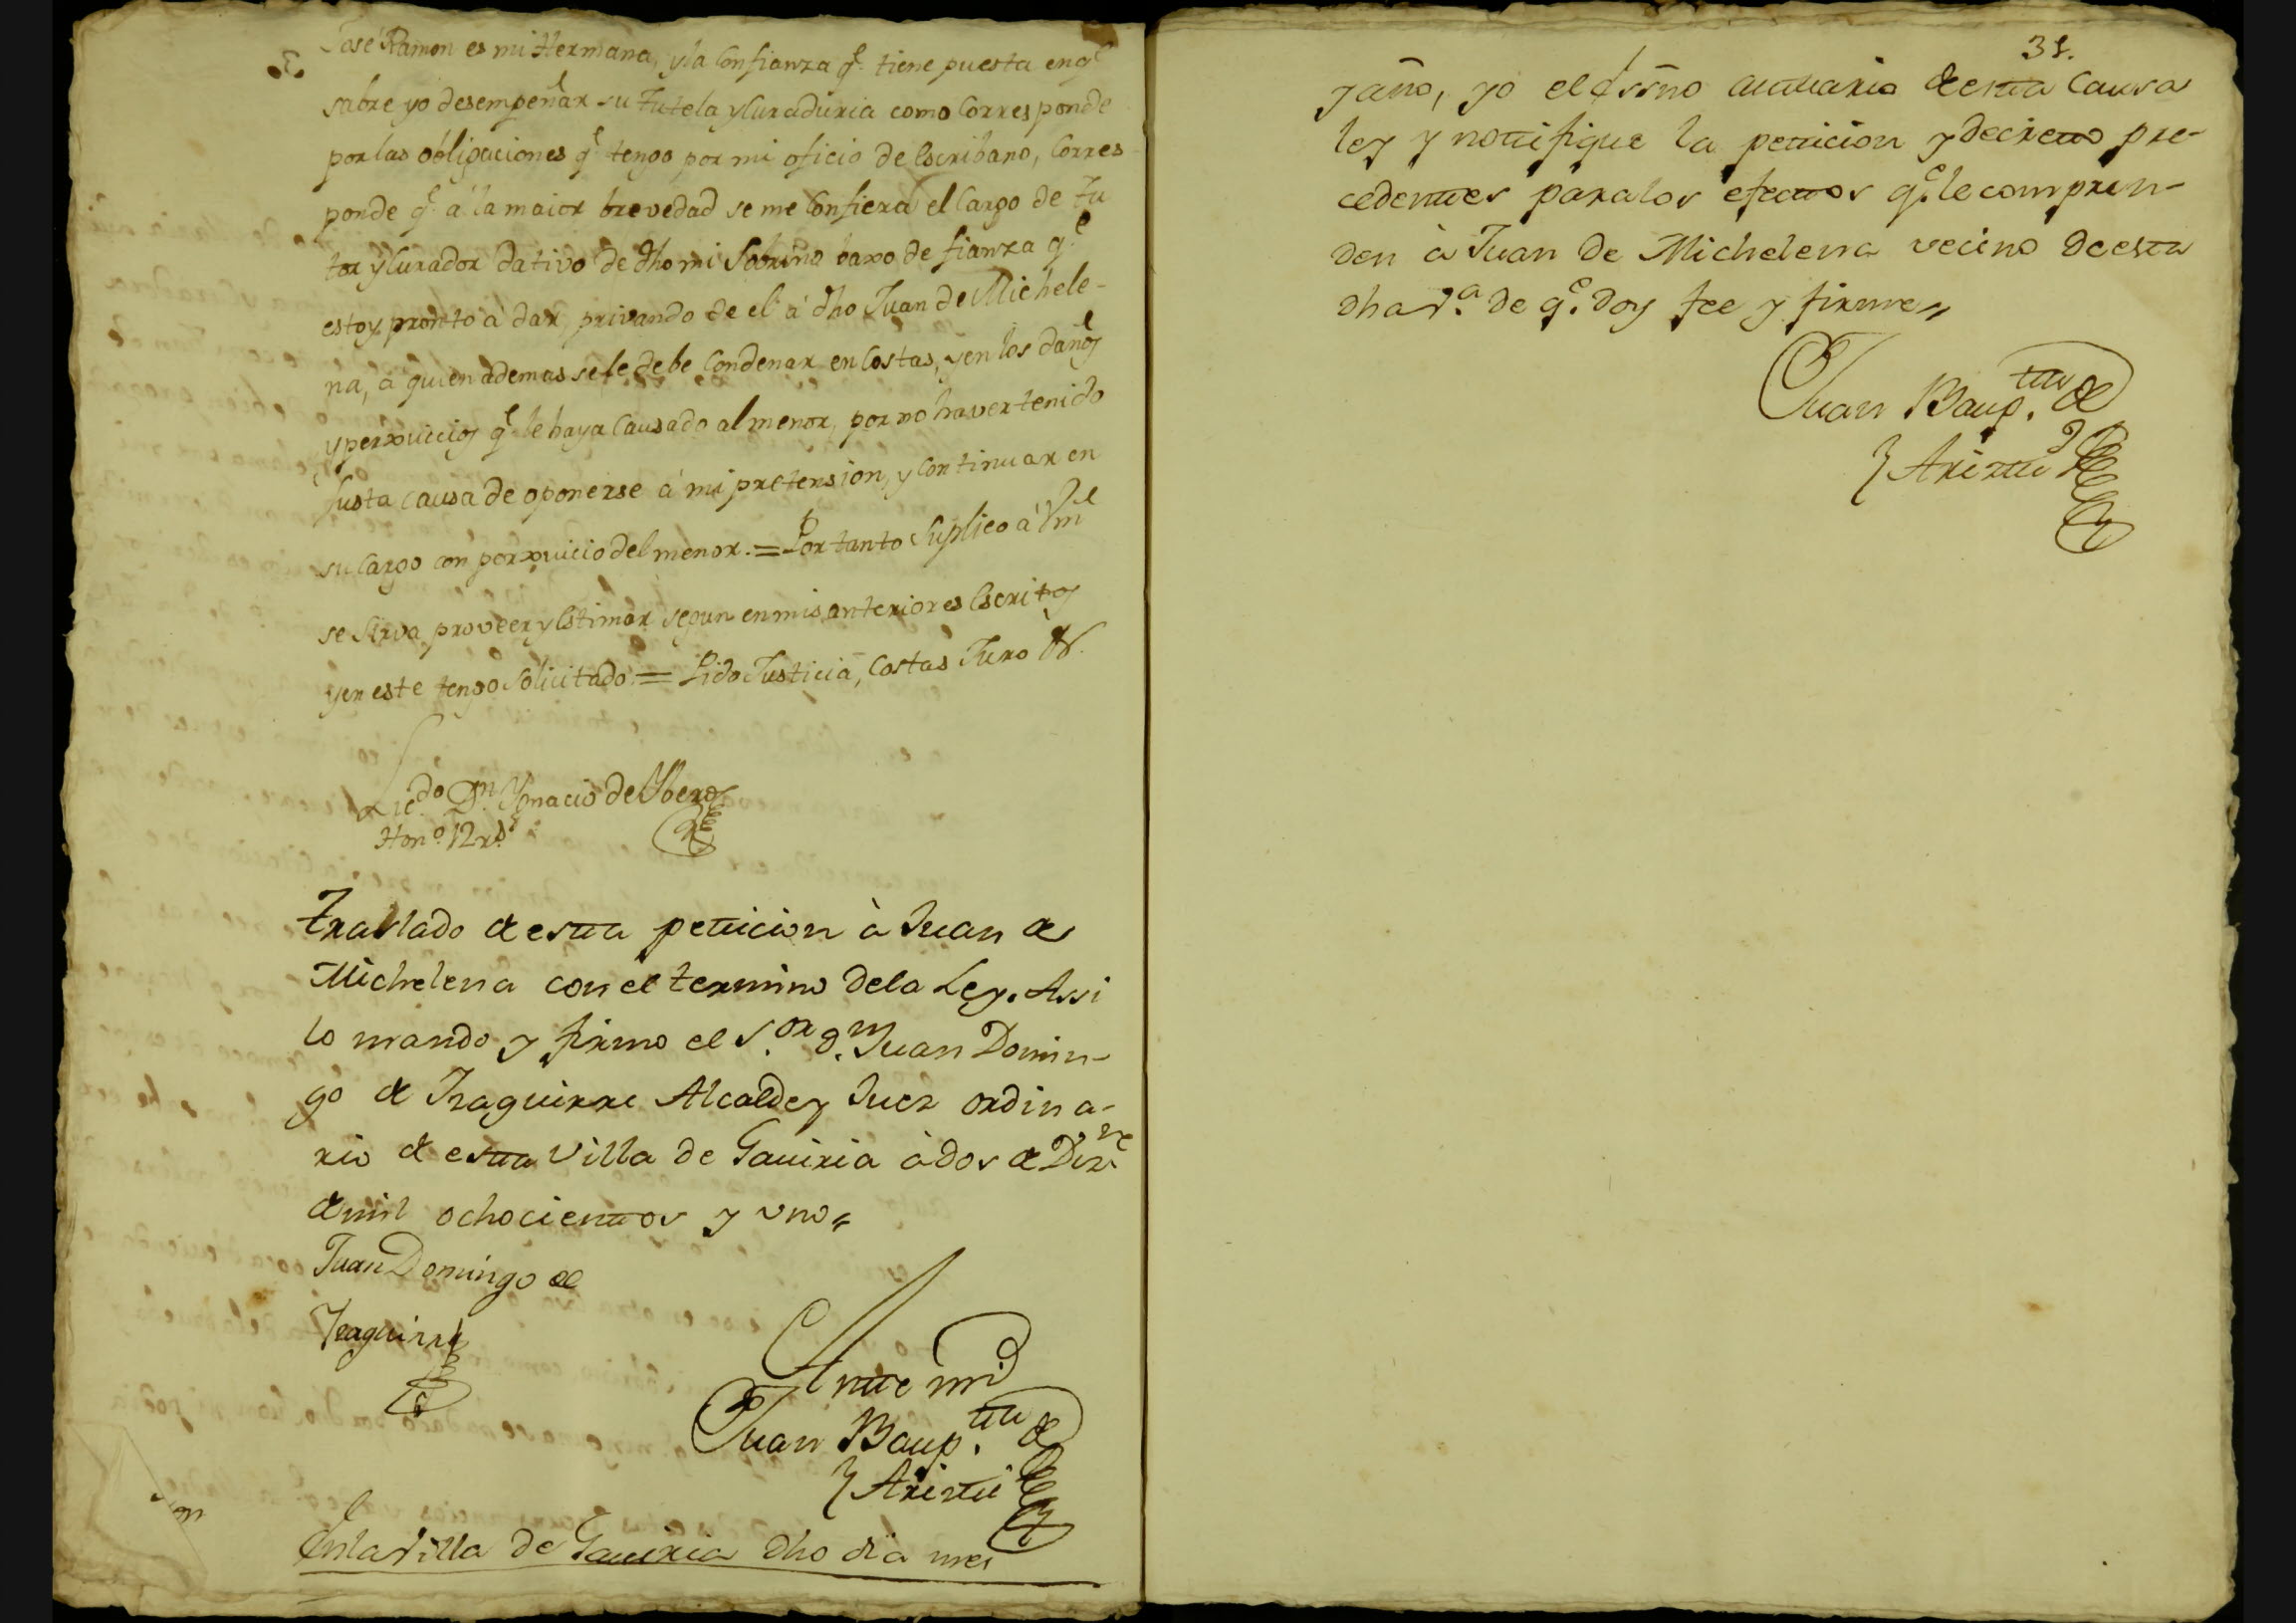 José Ramon es mi Hermana, y la Confianza q.e tiene puesta en q.e
sabre yo desempeñar su Tutela y Curaduria como Corresponde
por las obligaciones q.e tengo por mi oficio de Escribano, Corres
ponde q.e a la maior brevedad se me Confiera el Cargo de Tu
tor y Curador dativo de dho mi Sobrino baxo de fianza q.e
estoy pronto à dar, privando de el à dho Juan de Michele-
na, à quien ademas se le debe Condenar en Costas, y en los daños
y perxuicios q.e le haya Causado al menor, por no haver tenido
Justa causa de oponerse à mi pretension, y Continuar en
su Cargo con perxuicio del menor. = Por tanto Suplico à Vm
se Sirva proveer y Estimar segun en mis anteriores Escritos
y en este tengo Solicitado = Pido Justicia, Costas Juro &.
Lic.do Dn. Ygnacio de Ybero
Hon.o 12 r.s
Traslado de esta peticion à Juan de
Michelena con el termino de la Ley. Assi
lo mando y firmo el S.or d.n Juan Domin-
go de Yzaguirre Alcalde y Juez ordina-
rio de esta Villa de Gaviria à dos de Diz.re
de mil ochocientos y uno,,
Juan Domingo de
Yzaguirre
Ante mi
Juan Baup.ta de
Ariztii
En la Villa de Gaviria dho dia mes
31.
y año, yo el Essno actuario de esta Causa
ley y notifique la peticion y decreto pre-
cedentes para los efectos q.e le compren-
den à Juan de Michelena vecino de esta
dha v.a de q.e doy fee y firme,,
Juan Baup.ta de
Ariztii